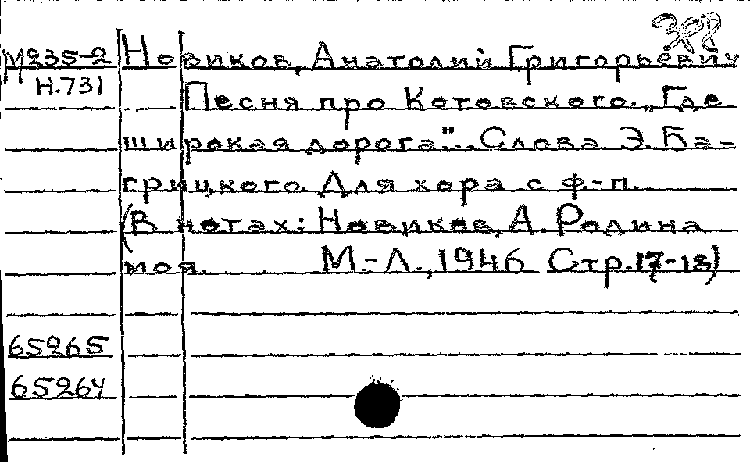 М235-2 Новиков, Анатолий Григорьевич
Н.731
Песня про Котовского. „Где
широкая дорога"... Слова Э. Ба-
грицкого. Для хора с ф-п.
(В нотах: Новиков, А. Родина
моя. М.-Л., 1946 Стр.17-18)
65265
65264